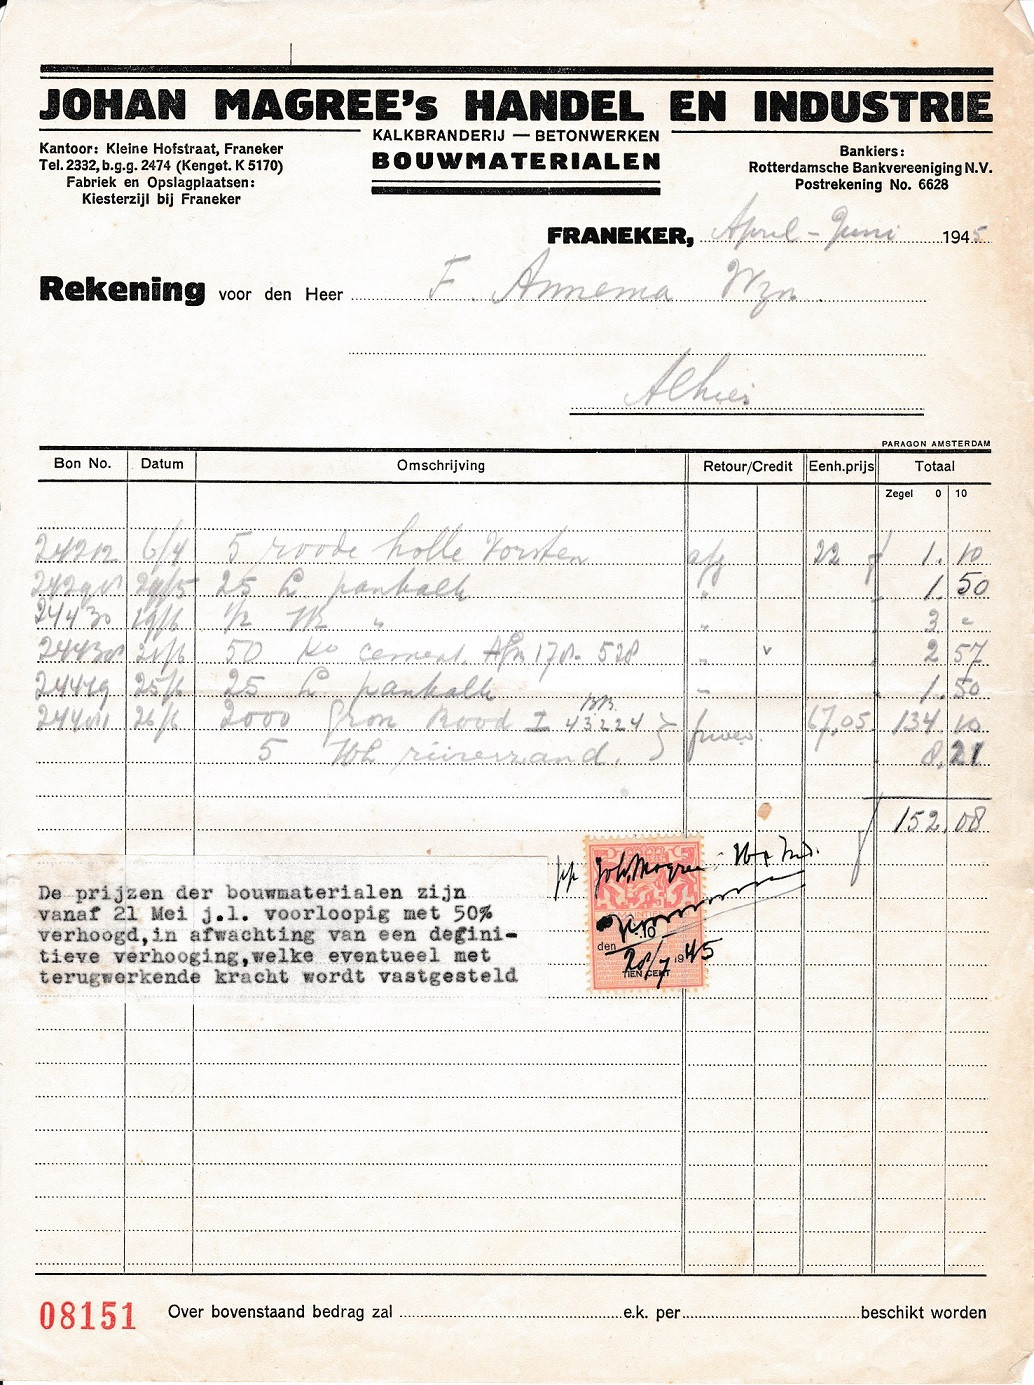 JOHAN MAGREE's HANDEL EN INDUSTRIE
KALKBRANDERIJ — BETONWERKEN
BOUWMATERIALEN
Kantoor: Kleine Hofstraat, Franeker
Tel. 2332, b.g.g. 2474 (Kenget. K 5170)
Fabriek en Opslagplaatsen:
Kiesterzijl bij Franeker
Bankiers:
Rotterdamsche Bankvereeniging N.V.
Postrekening No. 6628
FRANEKER, April - Juni 1945
Rekening voor den Heer F. Annema Wzn.
Alhier
PARAGON AMSTERDAM
Bon No. Datum Omschrijving Retour/Credit Eenh.prijs Totaal
Zegel 0 10
24212 6/4 5 roode holle Vorsten afg 22 f 1. 10
29/5 25 L pankalk " 1. 50
24430 19/6 1/2 " " 3 -
21/6 50 Ko cement. 178-528 " 2 57
24419 25/6 25 L pankalk " 1. 50
26/6 2000 Gron Rood I 43224 67,05 134 10
5 rivierzand. 8. 21
f 152.08
pp Joh. Magree's H & Ind.
De prijzen der bouwmaterialen zijn
vanaf 21 Mei j.l. voorloopig met 50%
verhoogd,in afwachting van een degini-
tieve verhooging,welke eventueel met
terugwerkende kracht wordt vastgesteld
.10
den 20/7 1945
TIEN CENT
08151 Over bovenstaand bedrag zal e.k. per beschikt worden